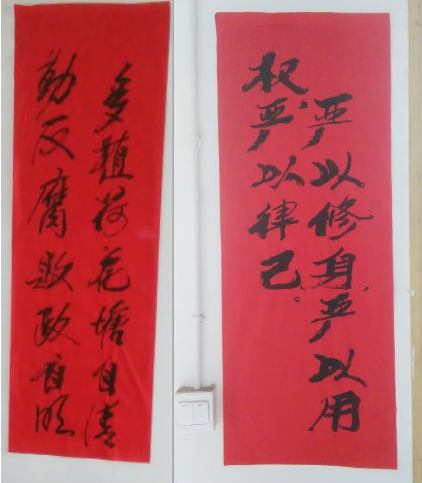 严以修身,严以用
权,严以律己。
多植荷花塘自清
勤反腐败政自明